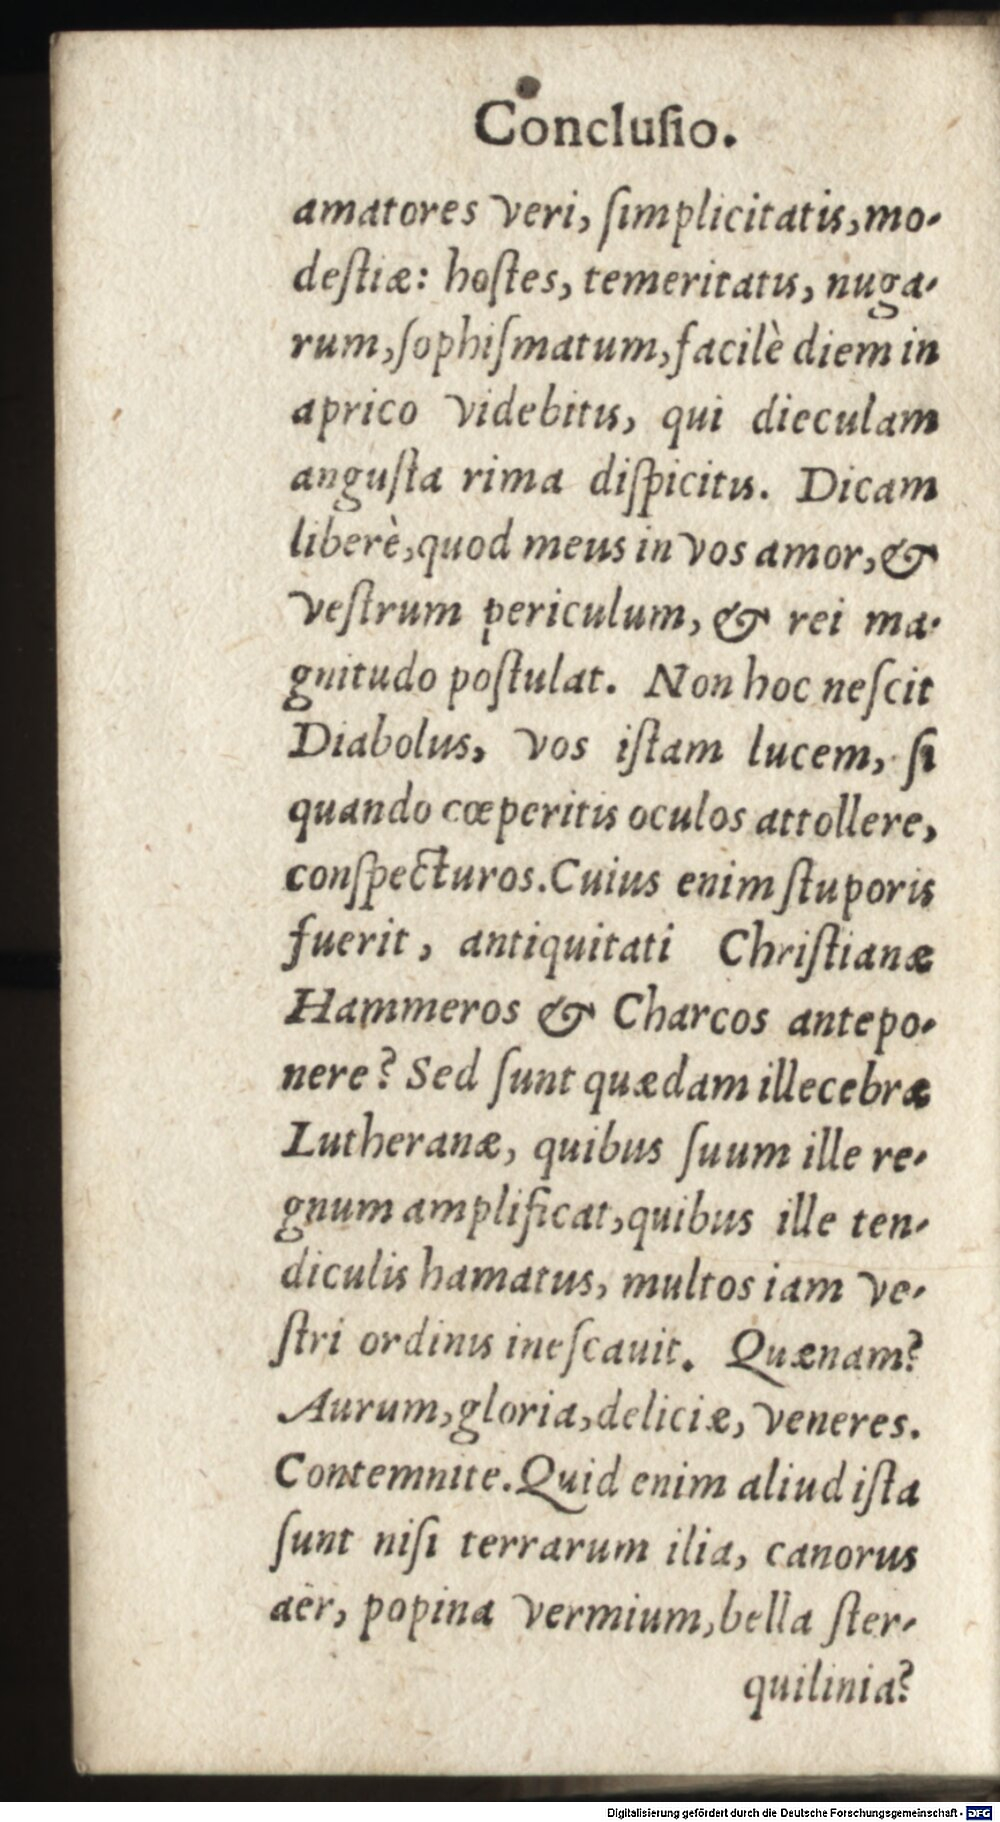 Concluſio.
amatores veri, ſimplicitatis, mo-
deſtiæ: hoſtes, temeritatis, nuga-
rum, ſophiſmatum, facilè diem in
aprico videbitis, qui dieculam
anguſta rima diſpicitis. Dicam
liberè, quod meus in vos amor, &
veſtrum periculum, & rei ma-
gnitudo poſtulat. Non hoc neſcit
Diabolus, vos iſtam lucem, ſi
quando cœperitis oculos attollere,
conſpecturos. Cuius enim ſtuporis
fuerit, antiquitati Chriſtianæ
Hammeros & Charcos antepo-
nere? Sed ſunt quædam illecebræ
Lutheranæ, quibus ſuum ille re-
gnum amplificat, quibus ille ten-
diculis hamatus, multos iam ve-
ſtri ordinis ineſcauit. Quænam?
Aurum, gloria, deliciæ, veneres.
Contemnite. Quid enim aliud iſta
ſunt niſi terrarum ilia, canorus
aër, popina vermium, bella ſter-
quilinia?
Digitalisierung gefördert durch die Deutsche Forschungsgemeinschaft - DFG